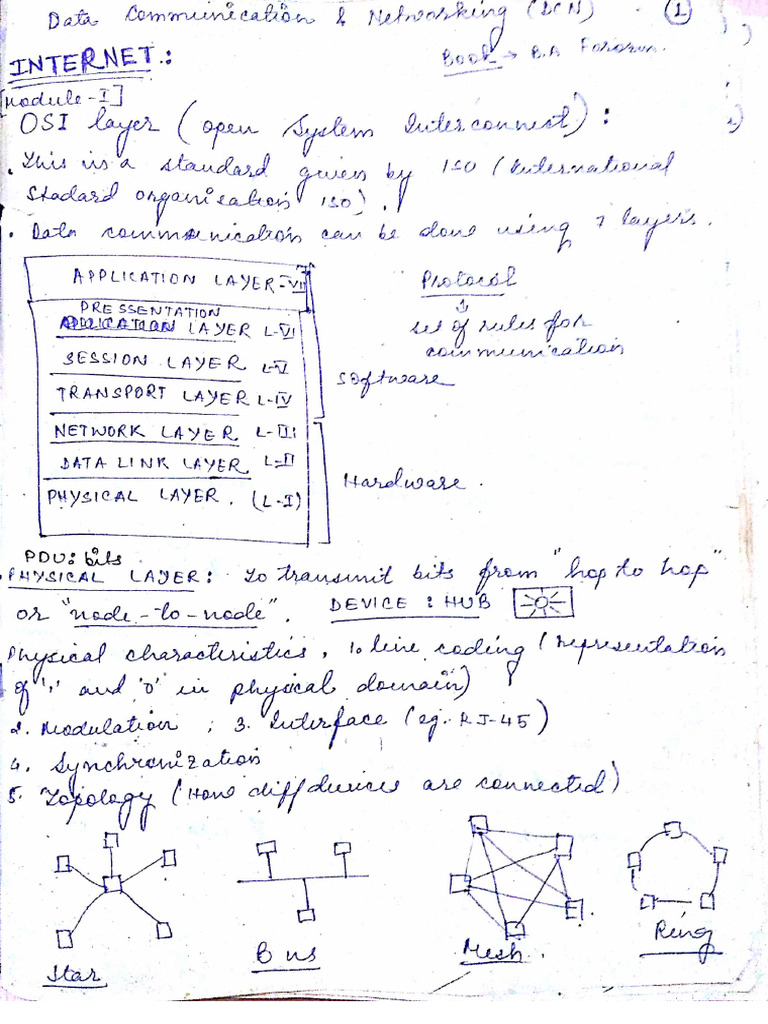 Data Communication & Networking (DCN) - (1)
INTERNET :
Book → B.A Forozun.
[Module-I]
OSI layer (open System Interconnect) :
• This is a standard given by ISO (International
Stadard organisation ISO).
• Data communication can be done using 7 layers.
APPLICATION LAYER-VII
PRESSENTATION
LAYER L-VI
SESSION LAYER L-V
TRANSPORT LAYER L-IV
NETWORK LAYER L-III
DATA LINK LAYER L-II
PHYSICAL LAYER. (L-I)
Software
Hardware.
Protocol
↓
set of rules for
communication
PDU: bits
PHYSICAL LAYER: To transmit bits from "hop to hop"
or "node-to-node". DEVICE : HUB
Physical characteristics, 1. line coding (representation
of '1' and '0' in physical domain)
2. Modulation ; 3. Interface (eg. RJ-45)
4. Synchronization
5. Topology (How diff devices are connected)
Star
Bus
Mesh.
Ring